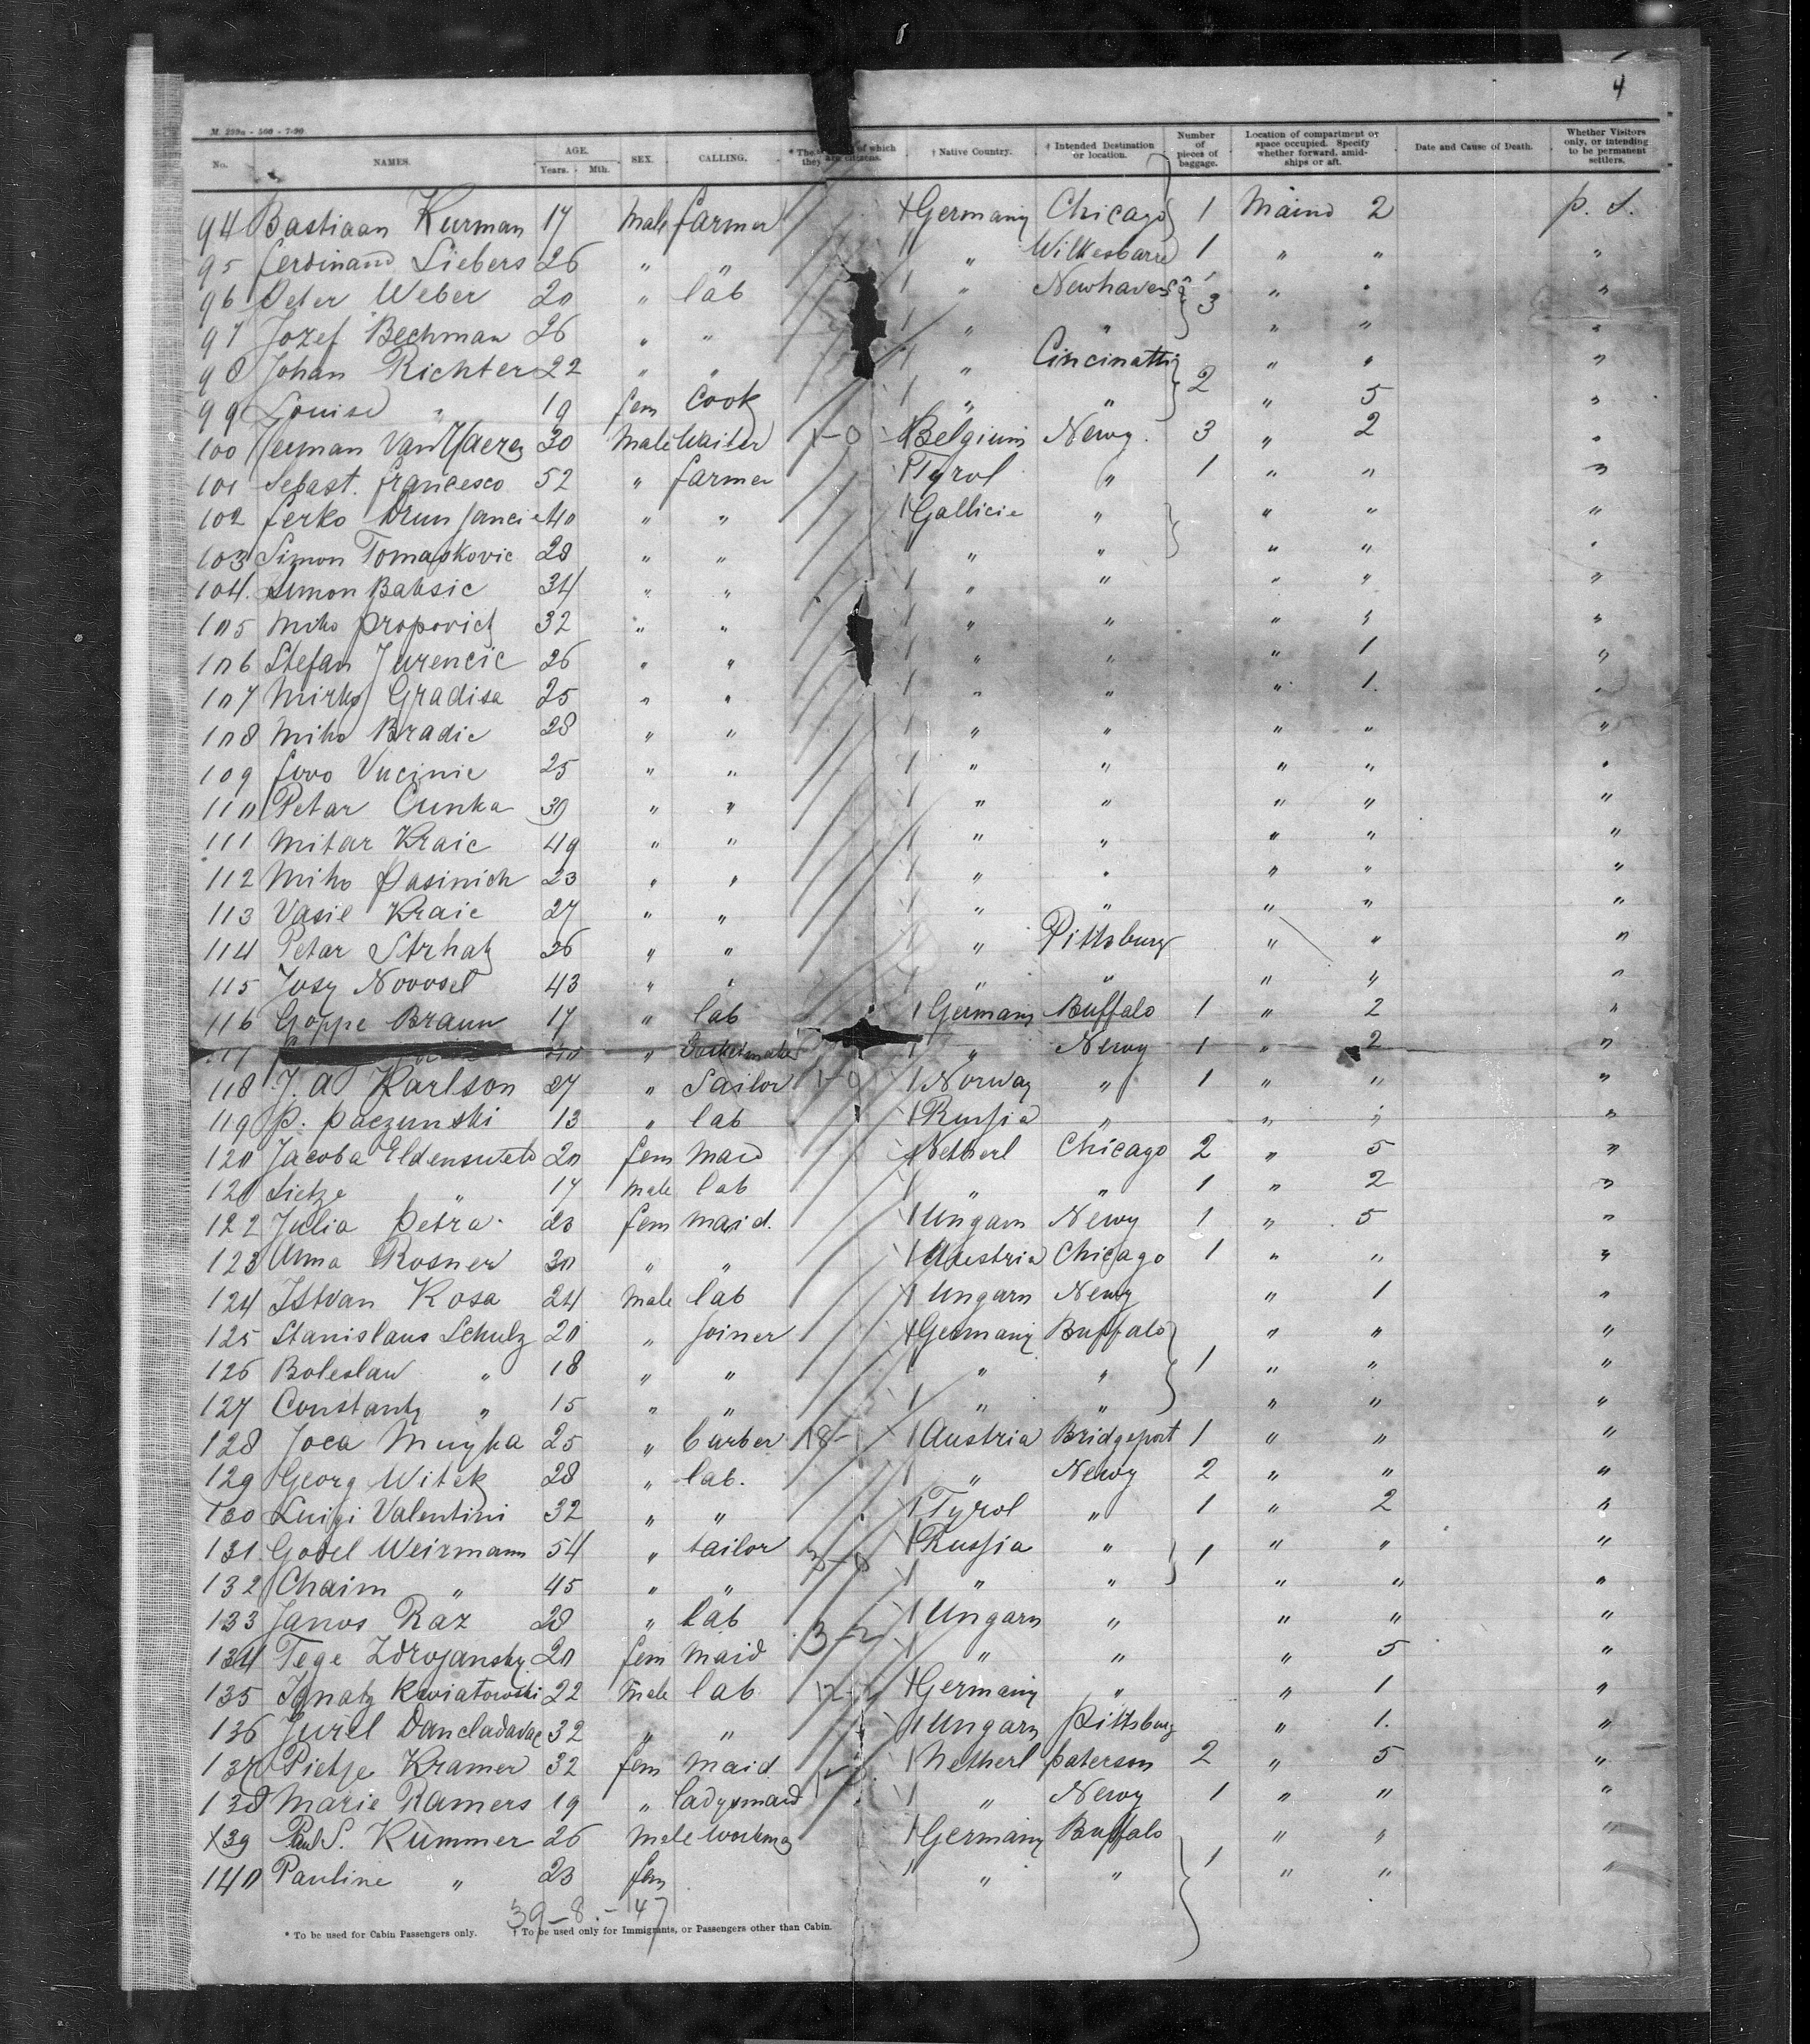 4
M. 299a - 500 - 7-90
No. NAMES. AGE. Years. Mth. SEX. CALLING. * The of which they are citizens. † Native Country. † Intended Destination or location. Number of pieces of baggage. Location of compartment or space occupied. Specify whether forward, amidships or aft. Date and Cause of Death. Whether Visitors only, or intending to be permanent settlers.
94 Bastiaan Kurman 17 Male farmer Germany Chicago 1 Maind 2 p. s.
95 Ferdinand Liebers 26 " " " Wilkesbarre 1 " " "
96 Peter Weber 20 " lab " Newhaven 3 " " "
97 Jozef Bechman 26 " " " " " " "
98 Johan Richter 22 " " " Cincinatti 2 " " "
99 Louise " 19 fem Cook " " " 5 "
100 Herman Van 30 Male Waiter Belgium Newy. 3 " 2 "
101 Sebast. Francesco 52 " farmer Tyrol " 1 " " "
102 Ferko 40 " " Gallicie " " " "
103 Simon Tomaskovic 28 " " " " " " "
104 Simon Babsic 34 " " " " " " "
105 Miho Propovich 32 " " " " " " "
106 Stefan Jurencic 26 " " " " " 1 "
107 Mirko Gradisa 25 " " " " " 1 "
108 Miho Bradic 28 " " " " " " "
109 Jovo Vucinic 25 " " " " " " "
110 Petar Cunka 30 " " " " " " "
111 Mitar Kraic 49 " " " " " " "
112 Miho Pasinich 23 " " " " " " "
113 Vasil Kraic 27 " " " " " " "
114 Petar Strhatz 26 " " " Pittsburg " " "
115 Josy Novosel 43 " " " " " " "
116 Goppe Braun 17 " lab Germany Buffalo 1 " 2 "
117 " " Newy 1 " 2 "
118 J. A. Karlson 27 " Sailor Norway " 1 " " "
119 P. Paczunski 13 " lab Russia " " " "
120 Jacoba 20 fem Maid Netherl Chicago 2 " 5 "
121 Sietze " 17 Male lab " " 1 " 2 "
122 Julia Petra 23 fem Maid. Ungarn Newy 1 " 5 "
123 Anna Rosner 30 " " Austria Chicago 1 " " "
124 Istvan Kosa 24 Male lab Ungarn Newy " 1 "
125 Stanislaus Schulz 20 " Joiner Germany Buffalo " " "
126 Boleslaw " 18 " " " " 1 " " "
127 Constantz " 15 " " " " " " "
128 Joca Muyka 25 " barber 18- Austria Bridgeport 1 " " "
129 Georg Witek 28 " lab. " Newy 2 " " "
130 Luigi Valentini 32 " " Tyrol " 1 " 2 "
131 Godel Weirmann 54 " tailor Russia " 1 " " "
132 Chaim " 45 " " " " " " "
133 Janos Raz 28 " lab Ungarn " " " "
134 Tege Zdrojansky 20 fem Maid " " " 5 "
135 Ignatz Kwiatowski 22 Male lab Germany " " 1 "
136 Jurel 32 " " Ungarn Pittsburg " 1. "
137 Pietje Kramer 32 fem Maid Netherl Paterson 2 " 5 "
138 Marie Ramers 19 " ladysmaid " Newy 1 " " "
139 Paul S. Kummer 26 Male Workman Germany Buffalo 1 " " "
140 Pauline " 23 fem " " " " "
39-8-47
* To be used for Cabin Passengers only. † To be used only for Immigrants, or Passengers other than Cabin.